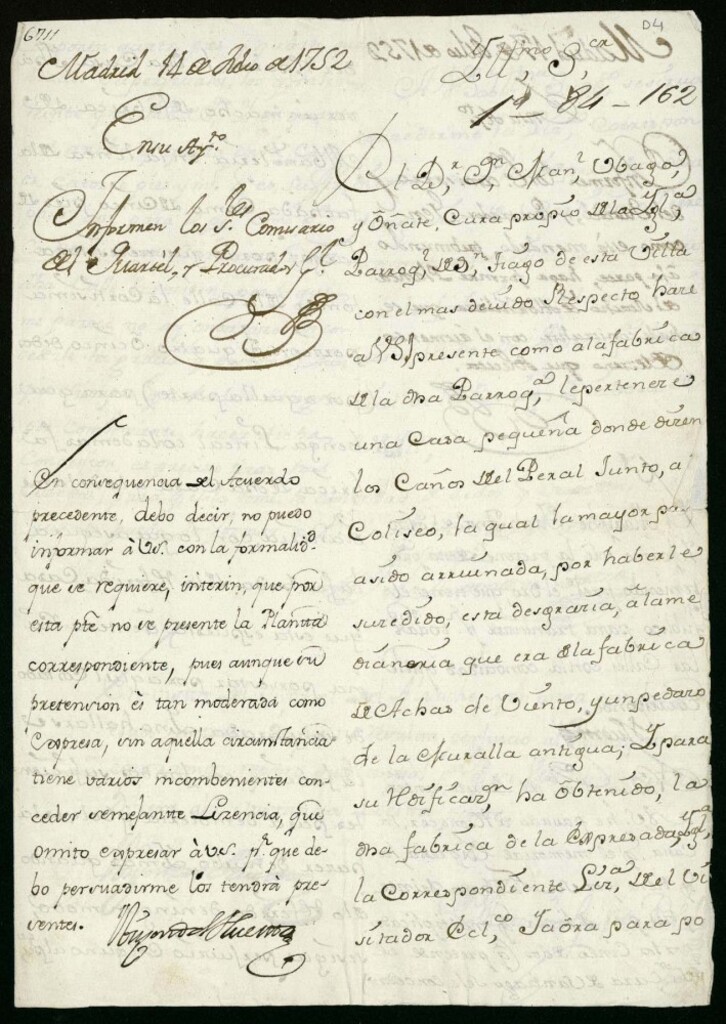 6711
D4
Madrid 14 de Julio de 1752
Ill,mo S,or
1ª 84-162
En su Ay.to
Informen los S.res Comisario
del Quartel, y Procurador G.l
El D,r D,n Man,l Ubago,
y Oñate, Cura propio de la Ygl,a
Parroq,l de S,n Tiago de esta Villa
con el mas devido Respecto hace
a VSI, presente como a la fabrica
de la dha Parroq,a le pertenece
una Casa pequeña donde dizen
los Caños del Peral Junto, a
Coliseo, la qual la mayor p.te
a sido arruinada, por haberle
suzedido, esta desgrazia, a la me
dianeria que era de la fabrica
de Achas de Viento, y un pedazo
de la Muralla antigua; Y para
su Hedificaz,on ha obtenido, la
dha fabrica de la Expresada, Ygl,a
la Correspondiente Liz,a, del Vi
sitador Ecl,co, Y aora para po
En consequencia del Acuerdo
precedente, debo decir, no puedo
informar à VS. con la formalid.d
que se requiere, interin, que por
esta pte no se presente la Plantta
correspondiente, pues aunque su
pretension es tan moderada como
Expresa, sin aquella circunstancia
tiene varios incombenientes con-
ceder semejantte Lizencia, que
omito expresar à VS. p.r que de-
bo persuadirme los tendrá pre-
sentes.